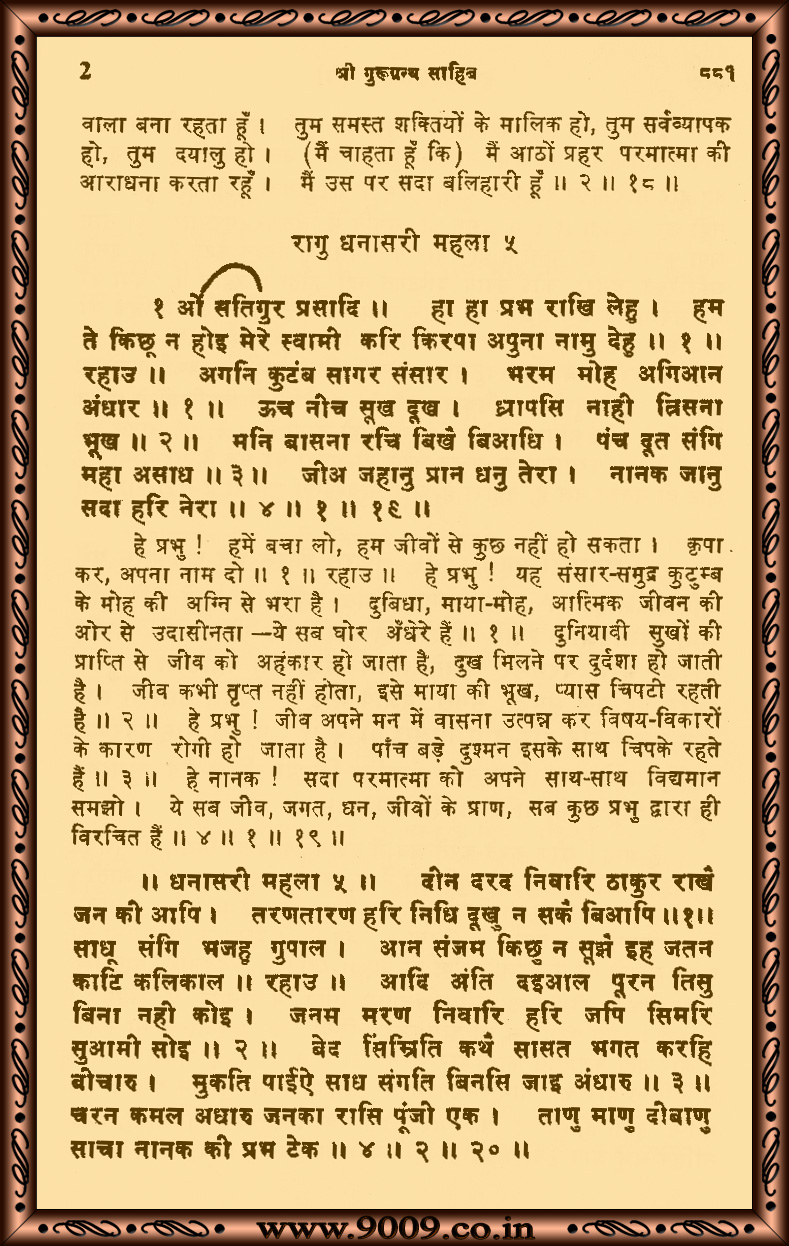 2 श्री गुरूग्रन्थ साहिब ८८१
वाला बना रहता हूँ । तुम समस्त शक्तियों के मालिक हो, तुम सर्वव्यापक
हो, तुम दयालु हो । (मैं चाहता हूँ कि) मैं आठों प्रहर परमात्मा की
आराधना करता रहूँ । मैं उस पर सदा बलिहारी हूँ ॥ २ ॥ १८ ॥
रागु धनासरी महला ५
१ ओं सतिगुर प्रसादि ॥ हा हा प्रभ राखि लेहु । हम
ते किछू न होइ मेरे स्वामी करि किरपा अपुना नामु देहु ॥ १ ॥
रहाउ ॥ अगनि कुटंब सागर संसार । भरम मोह अगिआन
अंधार ॥ १ ॥ ऊच नीच सूख दूख । ध्रापसि नाही त्रिसना
भूख ॥ २ ॥ मनि बासना रचि बिखै बिआधि । पंच दूत संगि
महा असाध ॥ ३ ॥ जीअ जहानु प्रान धनु तेरा । नानक जानु
सदा हरि नेरा ॥ ४ ॥ १ ॥ १९ ॥
हे प्रभु ! हमें बचा लो, हम जीवों से कुछ नहीं हो सकता । कृपा
कर, अपना नाम दो ॥ १ ॥ रहाउ ॥ हे प्रभु ! यह संसार-समुद्र कुटुम्ब
के मोह की अग्नि से भरा है । दुबिधा, माया-मोह, आत्मिक जीवन की
ओर से उदासीनता —ये सब घोर अँधेरे हैं ॥ १ ॥ दुनियावी सुखों की
प्राप्ति से जीव को अहंकार हो जाता है, दुख मिलने पर दुर्दशा हो जाती
है । जीव कभी तृप्त नहीं होता, इसे माया की भूख, प्यास चिपटी रहती
है ॥ २ ॥ हे प्रभु ! जीव अपने मन में वासना उत्पन्न कर विषय-विकारों
के कारण रोगी हो जाता है । पाँच बड़े दुश्मन इसके साथ चिपके रहते
हैं ॥ ३ ॥ हे नानक ! सदा परमात्मा को अपने साथ-साथ विद्यमान
समझो । ये सब जीव, जगत, धन, जीवों के प्राण, सब कुछ प्रभु द्वारा ही
विरचित हैं ॥ ४ ॥ १ ॥ १९ ॥
॥ धनासरी महला ५ ॥ दीन दरद निवारि ठाकुर राखै
जन की आपि । तरणतारण हरि निधि दूखु न सकै बिआपि ॥१॥
साधू संगि भजहु गुपाल । आन संजम किछु न सूझै इह जतन
काटि कलिकाल ॥ रहाउ ॥ आदि अंति दइआल पूरन तिसु
बिना नही कोइ । जनम मरण निवारि हरि जपि सिमरि
सुआमी सोइ ॥ २ ॥ बेद सिंम्रिति कथै सासत भगत करहि
बीचारु । मुकति पाईऐ साध संगति बिनसि जाइ अंधारु ॥ ३ ॥
चरन कमल अधारु जनका रासि पूंजी एक । ताणु माणु दीबाणु
साचा नानक की प्रभ टेक ॥ ४ ॥ २ ॥ २० ॥
www.9009.co.in